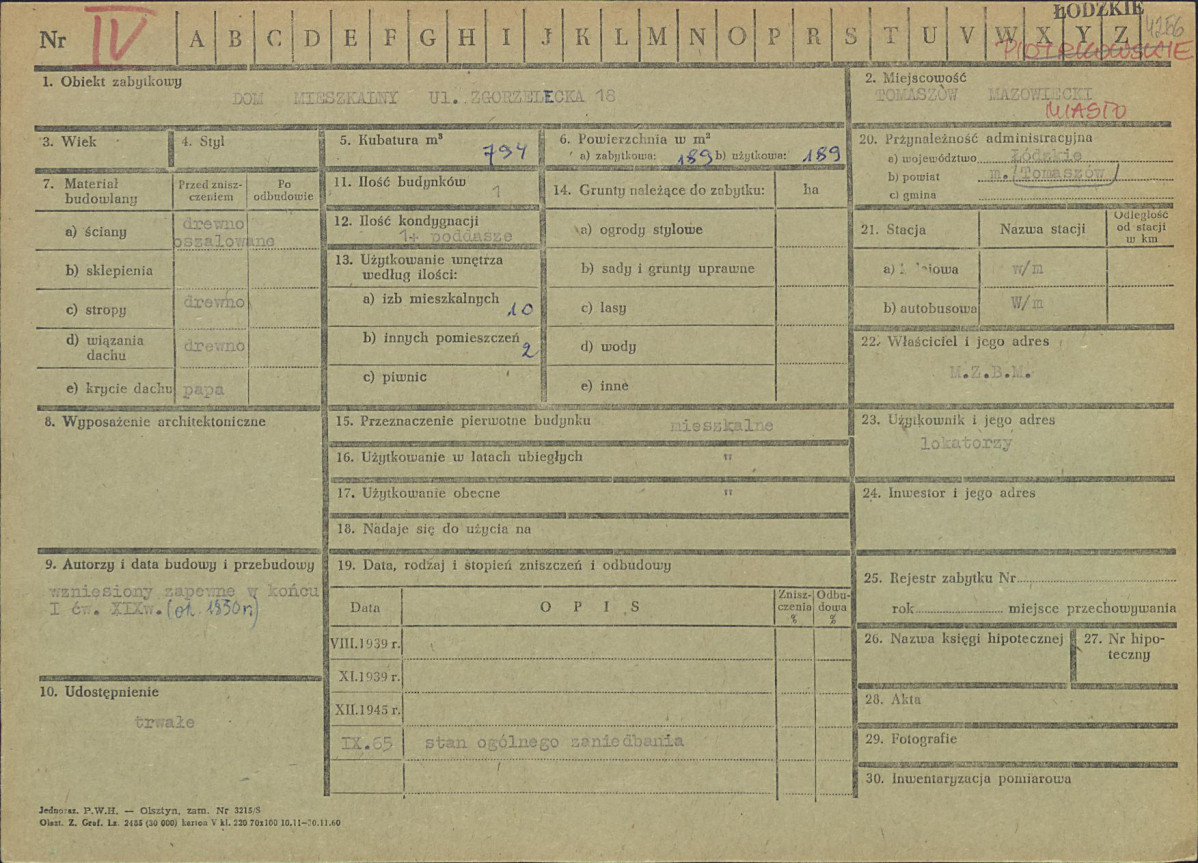 ŁODZKIE
Nr IV A B C D E F G H I J K L M N O P R S T U V W X Y Z 4286
PIOTRKOWSKIE
1. Obiekt zabytkowy
DOM MIESZKALNY Ul. ZGORZELECKA 18
2. Miejscowość
TOMASZÓW MAZOWIECKI
MIASTO
3. Wiek
4. Styl
5. Kubatura m³
794
6. Powierzchnia w m²
a) zabytkowa: 189 b) użytkowa: 189
20. Przynależność administracyjna
a) województwo Łódzkie
b) powiat m. (Tomaszów)
c) gmina
7. Materiał budowlany
Przed zniszczeniem
Po odbudowie
a) ściany drewno oszalowane
b) sklepienia
c) stropy drewno
d) wiązania dachu drewno
e) krycie dachu papa
11. Ilość budynków
1
12. Ilość kondygnacji
1+ poddasze
13. Użytkowanie wnętrza
według ilości:
a) izb mieszkalnych
10
b) innych pomieszczeń
2
c) piwnic
14. Grunty należące do zabytku: ha
a) ogrody stylowe
b) sady i grunty uprawne
c) lasy
d) wody
e) inne
21. Stacja
Nazwa stacji
Odległość
od stacji
w km
a) w/m
b) autobusowa W/m
22. Właściciel i jego adres
M.Z.B.M.
8. Wyposażenie architektoniczne
15. Przeznaczenie pierwotne budynku mieszkalne
16. Użytkowanie w latach ubiegłych "
17. Użytkowanie obecne "
18. Nadaje się do użycia na
23. Użytkownik i jego adres
lokatorzy
24. Inwestor i jego adres
9. Autorzy i data budowy i przebudowy
wzniesiony zapewne w końcu
I ćw. XIXw. (ok. 1830 r.)
10. Udostępnienie
trwałe
19. Data, rodzaj i stopień zniszczeń i odbudowy
Data
O P I S
Zniszczenia %
Odbudowa %
VIII.1939 r.
XI.1939 r.
XII.1945 r.
IX.65 stan ogólnego zaniedbania
25. Rejestr zabytku Nr
rok miejsce przechowywania
26. Nazwa księgi hipotecznej
27. Nr hipoteczny
28. Akta
29. Fotografie
30. Inwentaryzacja pomiarowa
Jednoraz. P.W.H. — Olsztyn, zam. Nr 3215/S
Olszt. Z. Graf. Lz. 2455 (30 000) karton V kl. 220 70x100 10.11—30.11.60